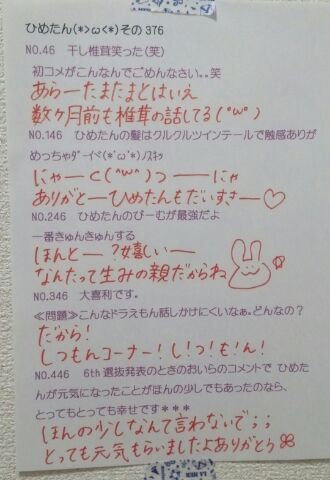 ひめたん(*>ω<*)その376
NO.46　干し椎茸笑った(笑)
初コメがこんなんでごめんなさい..笑
あらーたまたまとはいえ
数ヶ月前も椎茸の話してる(°ω°)
NO.146　ひめたんの髪はクルクルツインテールで触感ありが
めっちゃﾀﾞｰｲﾍﾞ(*'ω'*)ﾉｽｷｯ
にゃーく(^ω^)つーにゃ
ありがとーひめたんもだいすきー♡
NO.246　ひめたんのびーむが最強だよ
一番きゅんきゅんする
ほんとー?嬉しいー
なんたって生みの親だからね
NO.346　大喜利です。
≪問題≫こんなドラえもん話しかけにくいなぁ。どんなの？
だから！
しつもんコーナー！し！つ！も！ん！
NO.446　6th選抜発表のときのおいらのコメントで ひめた
んが元気になったことがほんの少しでもあったのなら、
とってもとっても幸せです＊＊＊
ほんの少しなんて言わないで;;
とっても元気もらいましたよありがとう